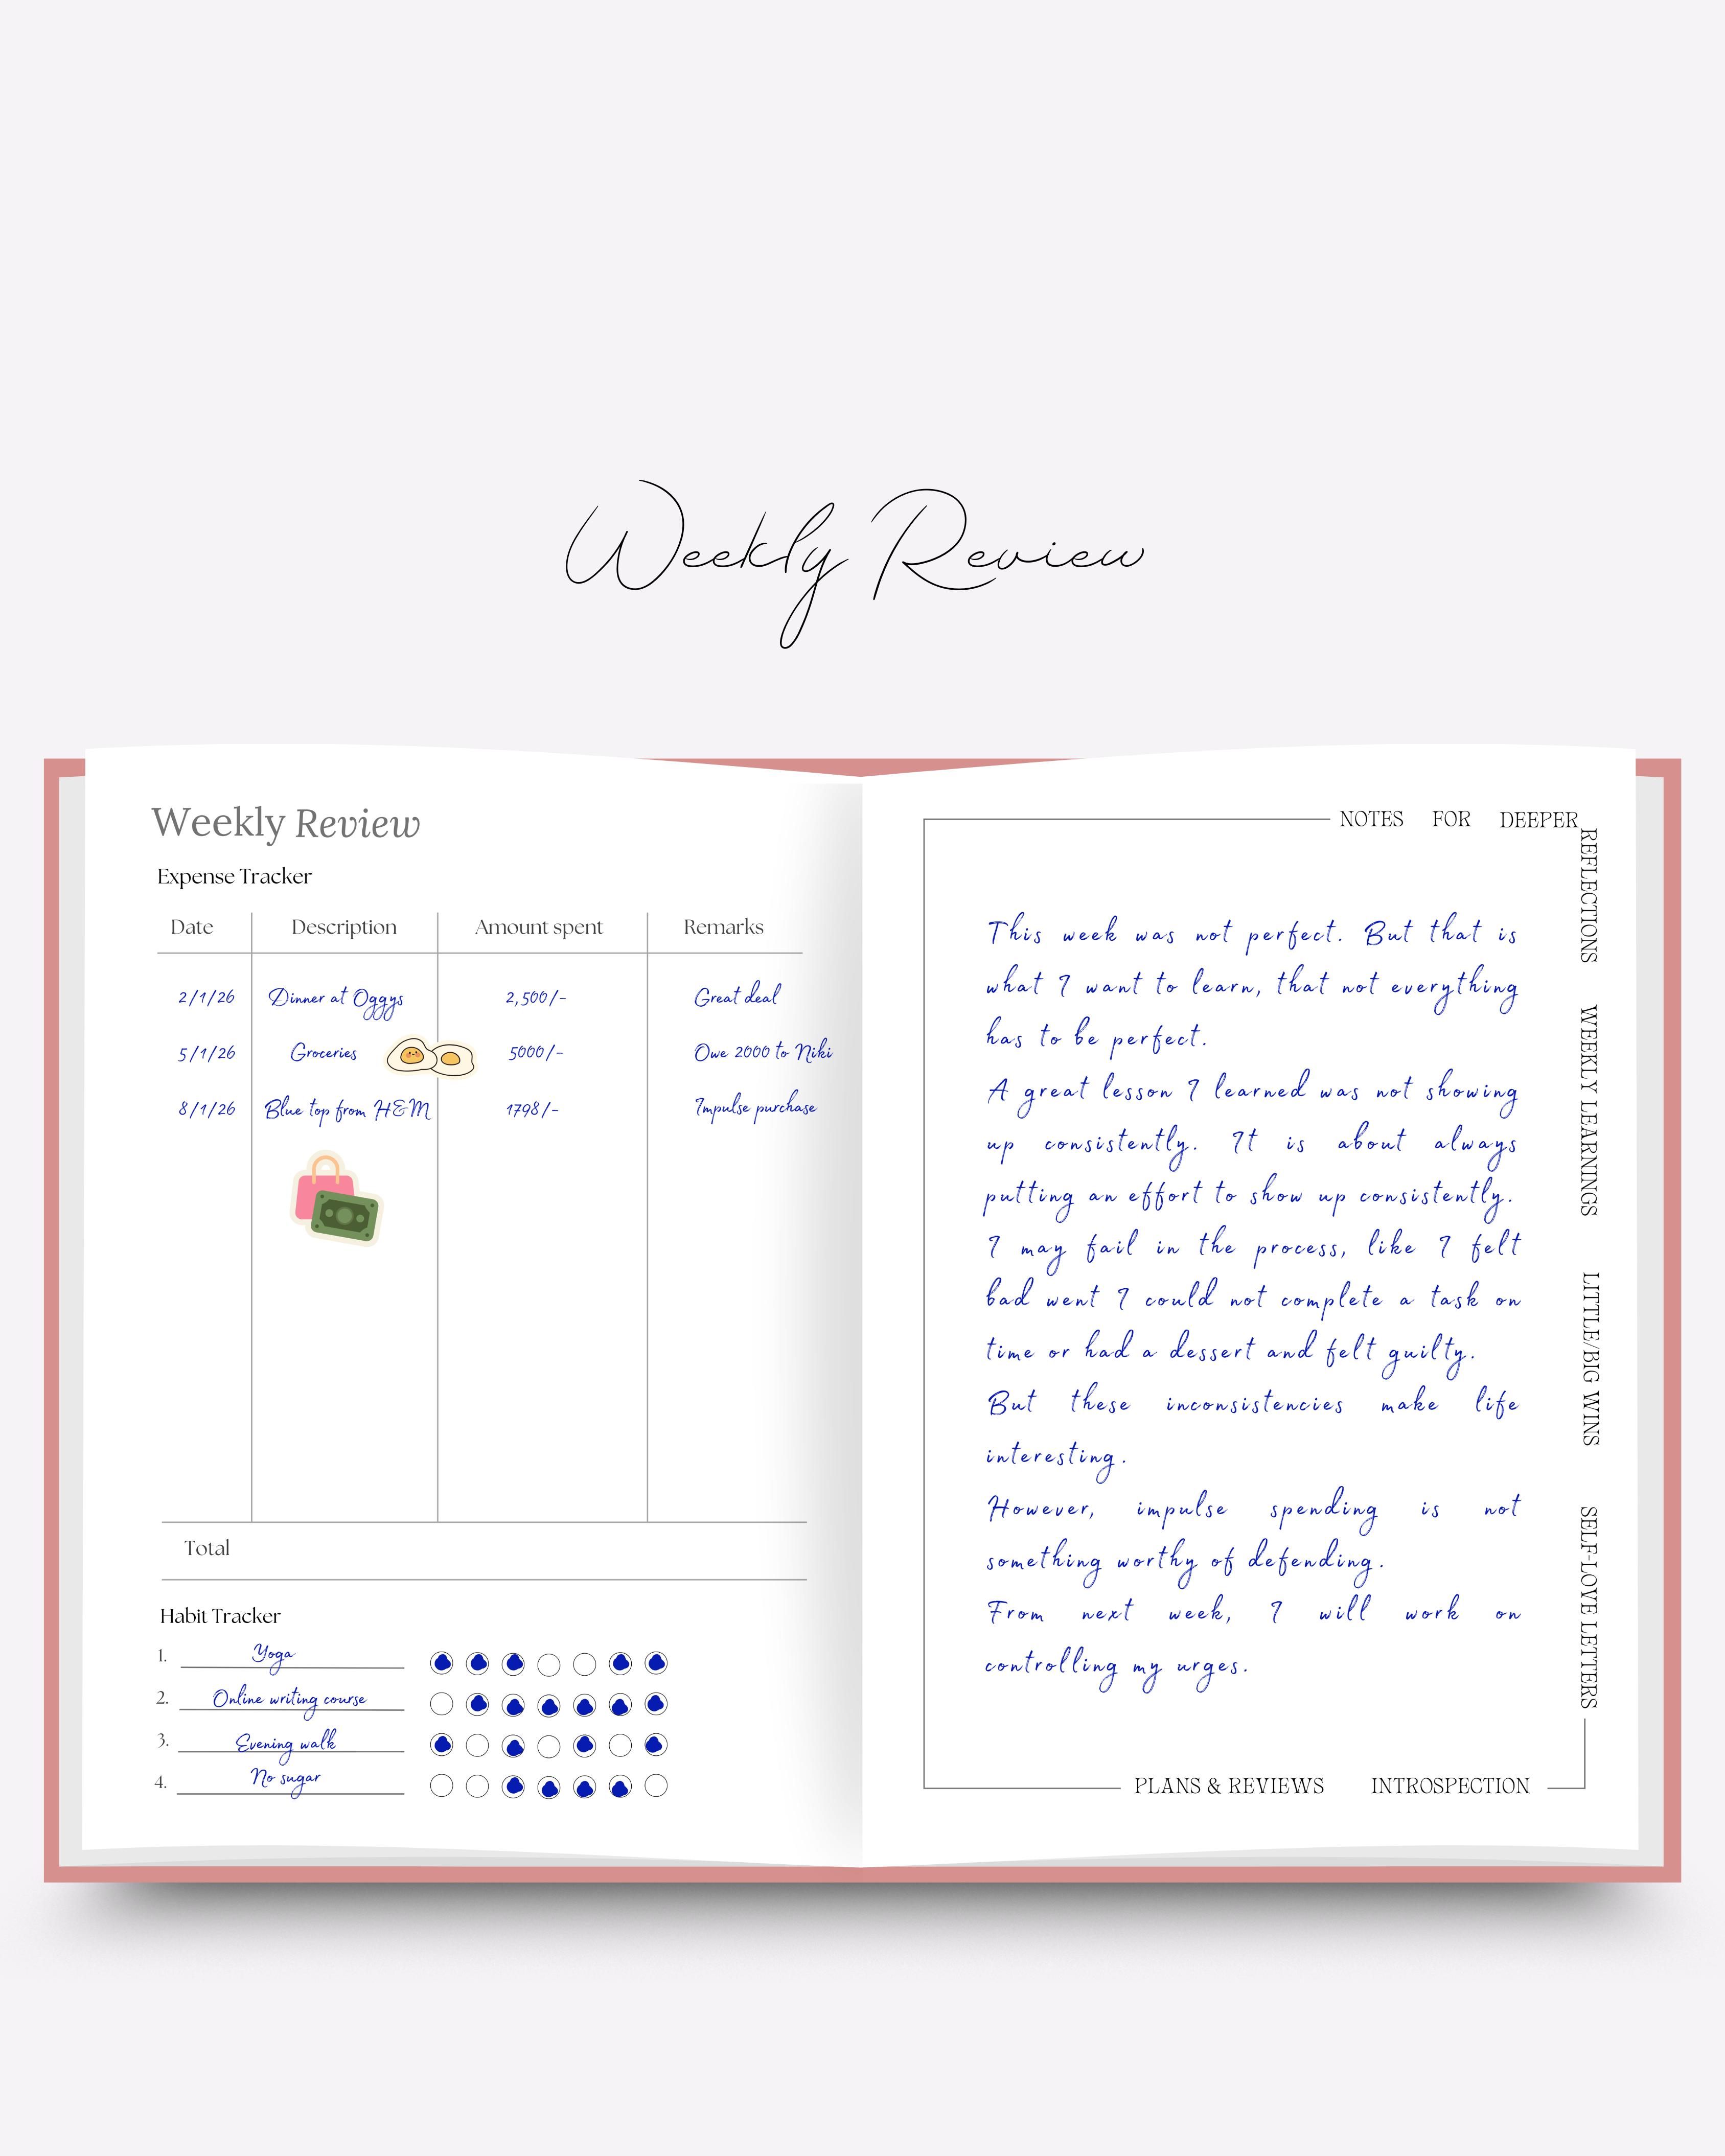 Weekly Review
Weekly Review
Expense Tracker
Date Description Amount spent Remarks
2/1/26 Dinner at Oggys 2,500/- Great deal
5/1/26 Groceries 5000/- Owe 2000 to Niki
8/1/26 Blue top from H&M 1798/- Impulse purchase
Total
Habit Tracker
1. Yoga
2. Online writing course
3. Evening walk
4. No sugar
NOTES FOR DEEPER
REFLECTIONS
WEEKLY LEARNINGS
LITTLE/BIG WINS
SELF-LOVE LETTERS
This week was not perfect. But that is
what I want to learn, that not everything
has to be perfect.
A great lesson I learned was not showing
up consistently. It is about always
putting an effort to show up consistently.
I may fail in the process, like I felt
bad went I could not complete a task on
time or had a dessert and felt guilty.
But these inconsistencies make life
interesting.
However, impulse spending is not
something worthy of defending.
From next week, I will work on
controlling my urges.
PLANS & REVIEWS INTROSPECTION